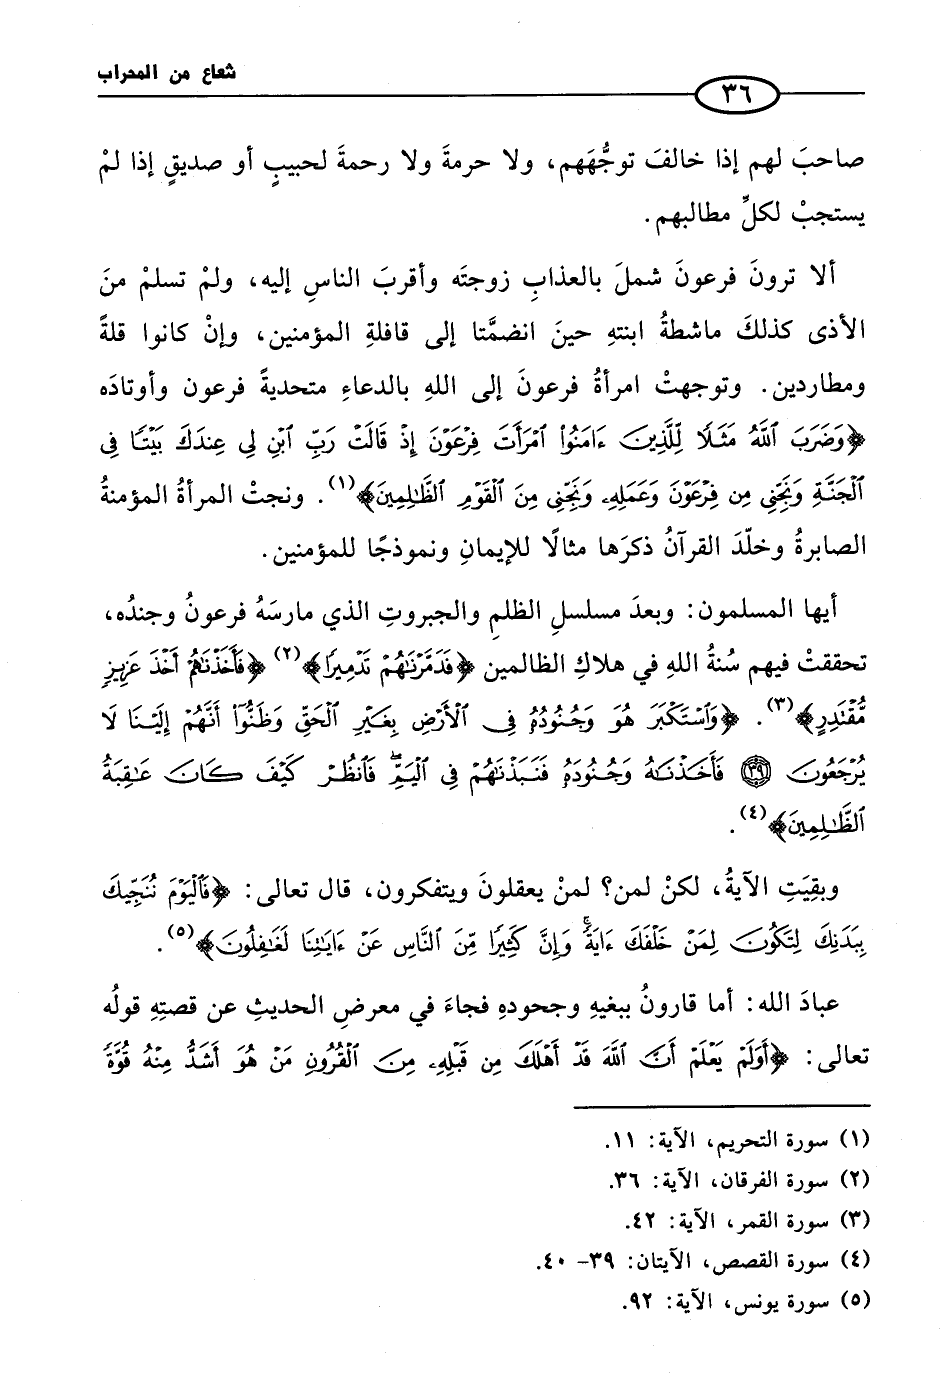 شعاع من المحراب
٣٦
صاحبَ لهم إذا خالفَ توجُّهَهم، ولا حرمةَ ولا رحمةَ لحبيبٍ أو صديقٍ إذا لمْ
يستجبْ لكلِّ مطالبهم.
ألا ترونَ فرعونَ شملَ بالعذابِ زوجتَه وأقربَ الناسِ إليه، ولمْ تسلمْ منَ
الأذى كذلكَ ماشطةُ ابنتهِ حينَ انضمَّتا إلى قافلةِ المؤمنين، وإنْ كانوا قلةً
ومطاردين. وتوجهتْ امرأةُ فرعونَ إلى اللهِ بالدعاءِ متحديةً فرعون وأوتادَه
﴿وَضَرَبَ ٱللَّهُ مَثَلًا لِّلَّذِينَ ءَامَنُوا۟ ٱمْرَأَتَ فِرْعَوْنَ إِذْ قَالَتْ رَبِّ ٱبْنِ لِى عِندَكَ بَيْتًا فِى
ٱلْجَنَّةِ وَنَجِّنِى مِن فِرْعَوْنَ وَعَمَلِهِۦ وَنَجِّنِى مِنَ ٱلْقَوْمِ ٱلظَّٰلِمِينَ﴾(١). ونجتْ المرأةُ المؤمنةُ
الصابرةُ وخلّدَ القرآنُ ذكرَها مثالًا للإيمانِ ونموذجًا للمؤمنين.
أيها المسلمون: وبعدَ مسلسلِ الظلمِ والجبروتِ الذي مارسَهُ فرعونُ وجندُه،
تحققتْ فيهم سُنةُ اللهِ في هلاكِ الظالمين ﴿فَدَمَّرْنَٰهُمْ تَدْمِيرًا﴾(٢) ﴿فَأَخَذْنَٰهُمْ أَخْذَ عَزِيزٍ
مُّقْتَدِرٍ﴾(٣). ﴿وَٱسْتَكْبَرَ هُوَ وَجُنُودُهُۥ فِى ٱلْأَرْضِ بِغَيْرِ ٱلْحَقِّ وَظَنُّوٓا۟ أَنَّهُمْ إِلَيْنَا لَا
يُرْجَعُونَ ٣٩ فَأَخَذْنَٰهُ وَجُنُودَهُۥ فَنَبَذْنَٰهُمْ فِى ٱلْيَمِّ ۖ فَٱنظُرْ كَيْفَ كَانَ عَٰقِبَةُ
ٱلظَّٰلِمِينَ﴾(٤).
وبقِيَتِ الآيةُ، لكنْ لمن؟ لمنْ يعقلونَ ويتفكرون، قال تعالى: ﴿فَٱلْيَوْمَ نُنَجِّيكَ
بِبَدَنِكَ لِتَكُونَ لِمَنْ خَلْفَكَ ءَايَةً ۚ وَإِنَّ كَثِيرًا مِّنَ ٱلنَّاسِ عَنْ ءَايَٰتِنَا لَغَٰفِلُونَ﴾(٥).
عبادَ الله: أما قارونُ ببغيهِ وجحودهِ فجاءَ في معرضِ الحديثِ عن قصتِهِ قولُه
تعالى: ﴿أَوَلَمْ يَعْلَمْ أَنَّ ٱللَّهَ قَدْ أَهْلَكَ مِن قَبْلِهِۦ مِنَ ٱلْقُرُونِ مَنْ هُوَ أَشَدُّ مِنْهُ قُوَّةً
(١) سورة التحريم، الآية: ١١.
(٢) سورة الفرقان، الآية: ٣٦.
(٣) سورة القمر، الآية: ٤٢.
(٤) سورة القصص، الآيتان: ٣٩- ٤٠.
(٥) سورة يونس، الآية: ٩٢.